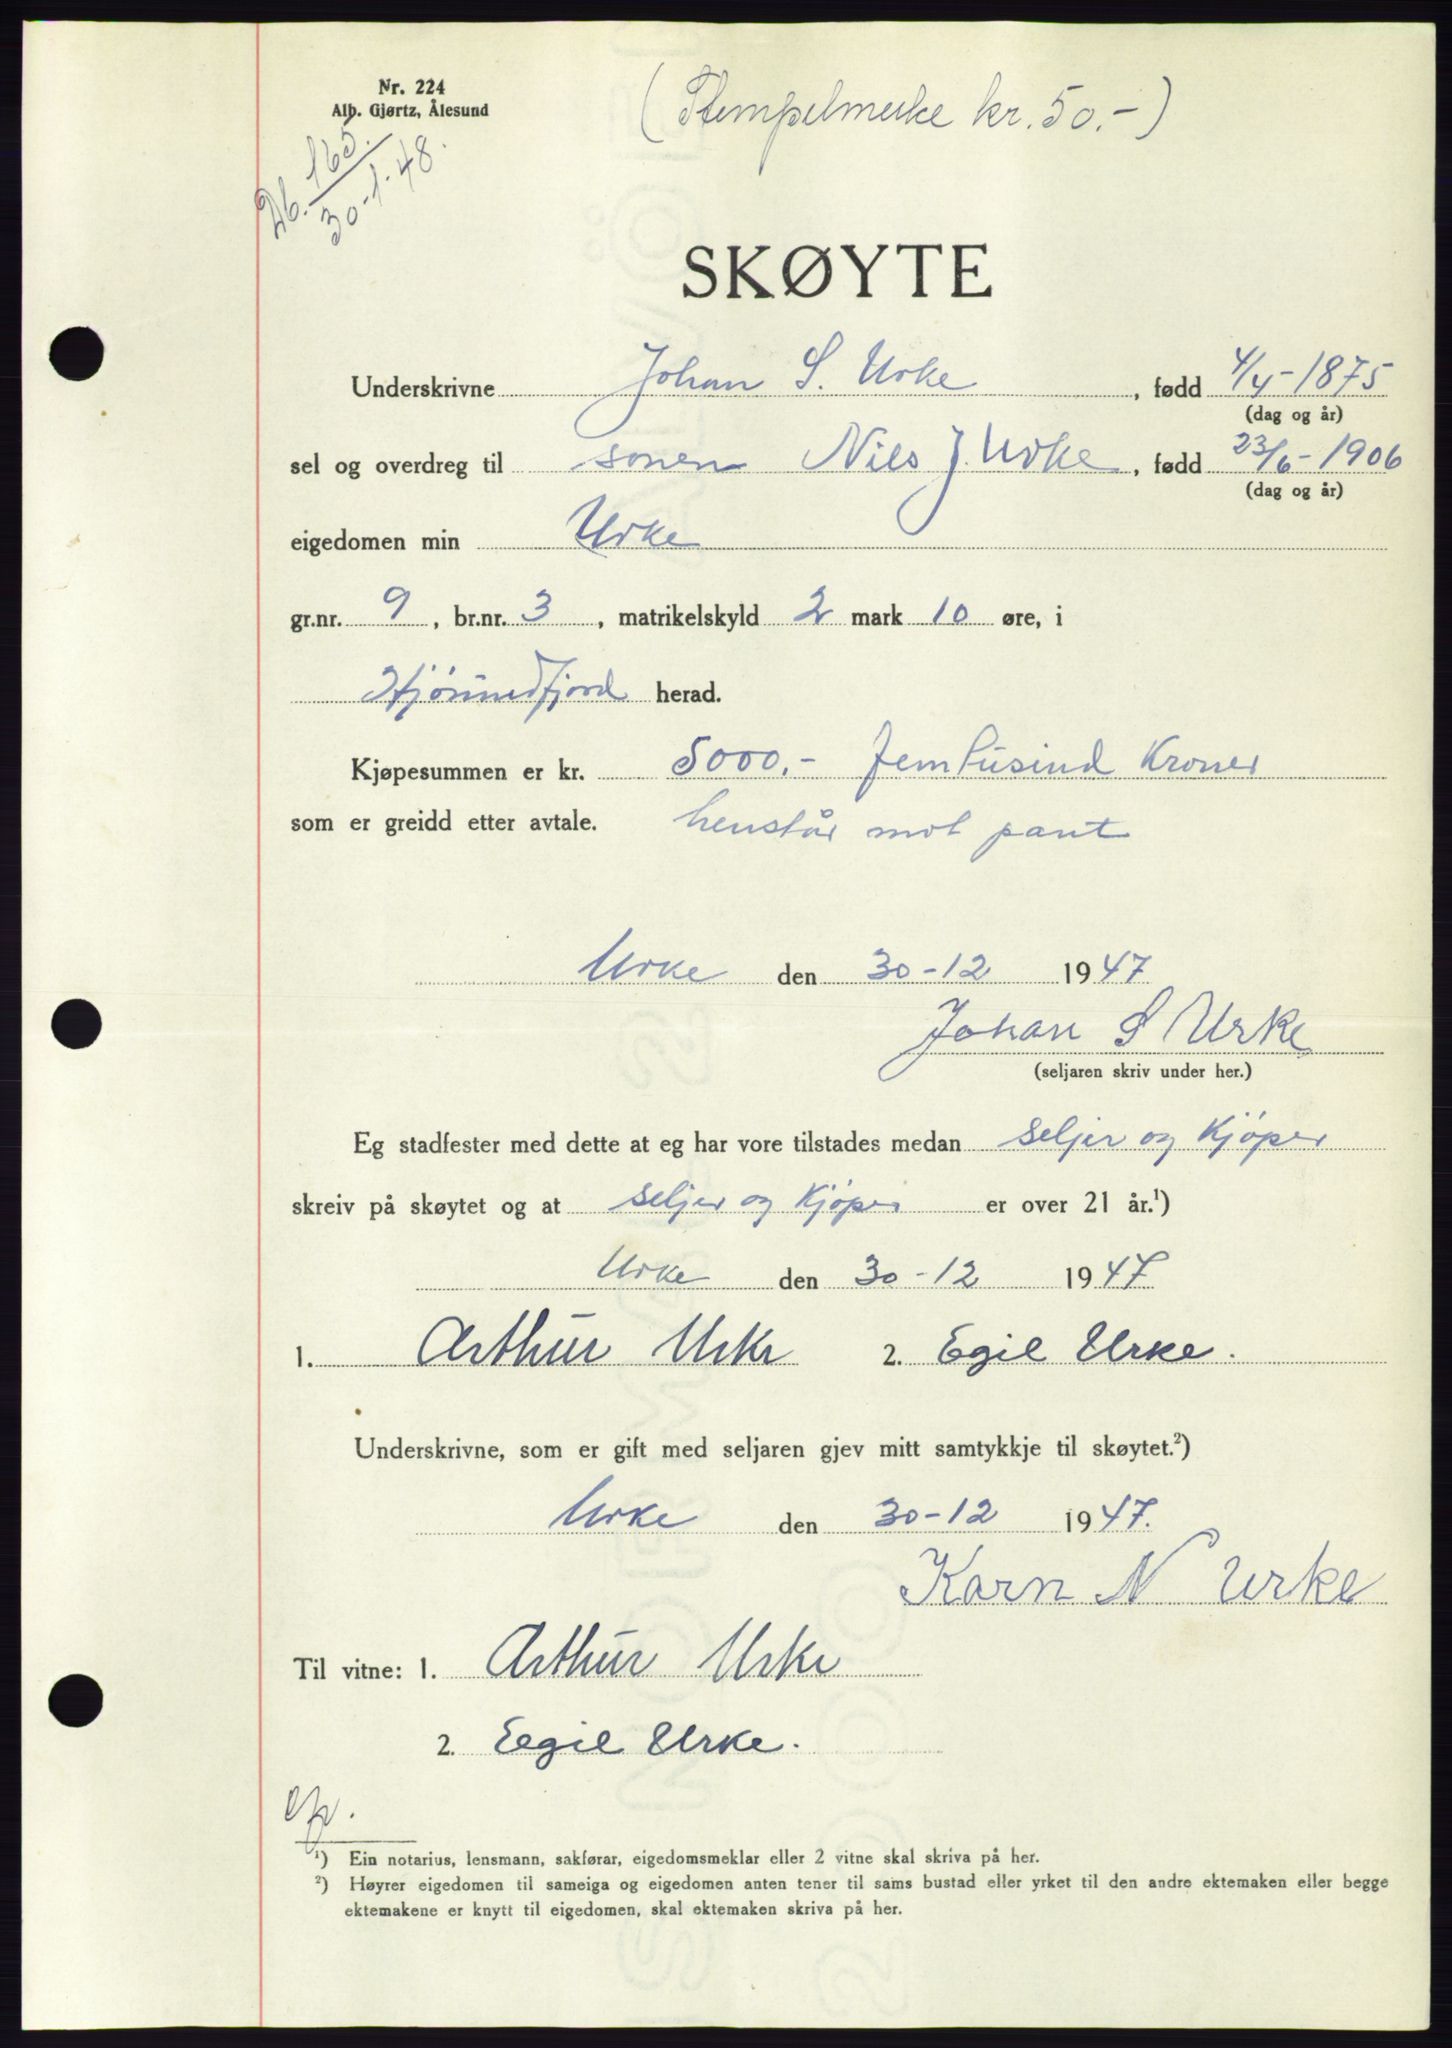 Nr. 224
Alb. Gjørtz, Ålesund
(Stempelmerke kr. 50.-)
Db. 165.
30-1-48.
SKØYTE
Underskrivne Johan S. Urke, fødd 4/4-1875
(dag og år)
sel og overdreg til sonen Nils J. Urke, fødd 23/6-1906
(dag og år)
eigedomen min Urke
gr.nr. 9, br.nr. 3, matrikelskyld 2 mark 10 øre, i
Hjørundfjord herad.
Kjøpesummen er kr. 5000.- femtusind Kroner
som er greidd etter avtale. henstår mot pant
Urke den 30-12 1947
Johan S Urke
(seljaren skriv under her.)
Eg stadfester med dette at eg har vore tilstades medan seljer og Kjøper
skreiv på skøytet og at seljer og Kjøper er over 21 år.¹)
Urke den 30-12 1947
1. Arthur Urke 2. Egil Urke.
Underskrivne, som er gift med seljaren gjev mitt samtykkje til skøytet.²)
Urke den 30-12 1947.
Karn N Urke
Til vitne: 1. Arthur Urke
2. Egil Urke.
¹) Ein notarius, lensmann, sakførar, eigedomsmeklar eller 2 vitne skal skriva på her.
²) Høyrer eigedomen til sameiga og eigedomen anten tener til sams bustad eller yrket til den andre ektemaken eller begge
ektemakene er knytt til eigedomen, skal ektemaken skriva på her.